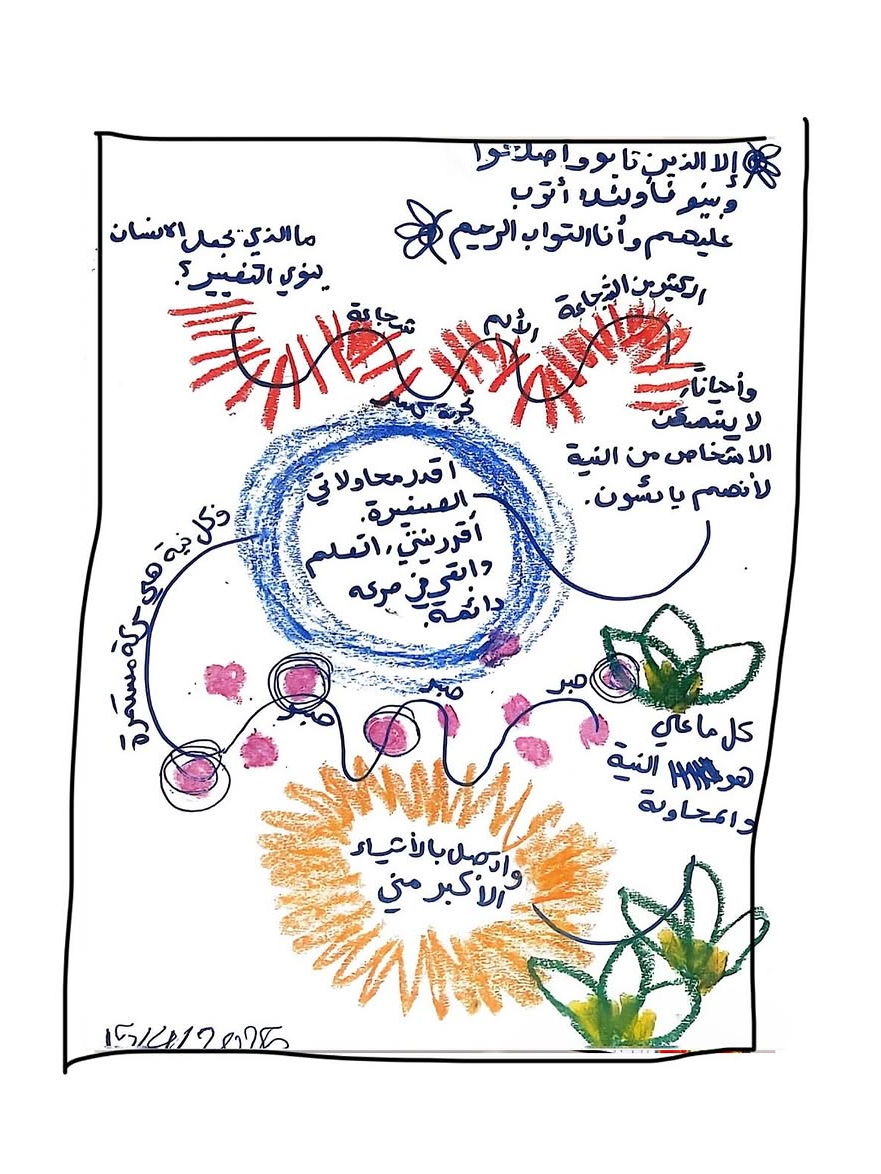 إلا الذين تابوو اصلحوا
وبينو فأولئك أتوب
عليهم وأنا التواب الرحيم
ما الذي يجعل الانسان
ينوي التغيير؟
شجاعة
الألم
الكثير من الشجاعة
وأحياناً
لا يتصعن
الاشخاص من النية
لأنهم يائسون.
اقدر محاولاتي
الصغيرة.
أقرر بنيتي، اتعلم
وانقي في حركه
دائمة.
وكل نية هي حركة مستمرة
صبر
صبر
صبر
كل ما علي
هو النية
والمحاولة
واتصل بالأشياء
الأكبر مني